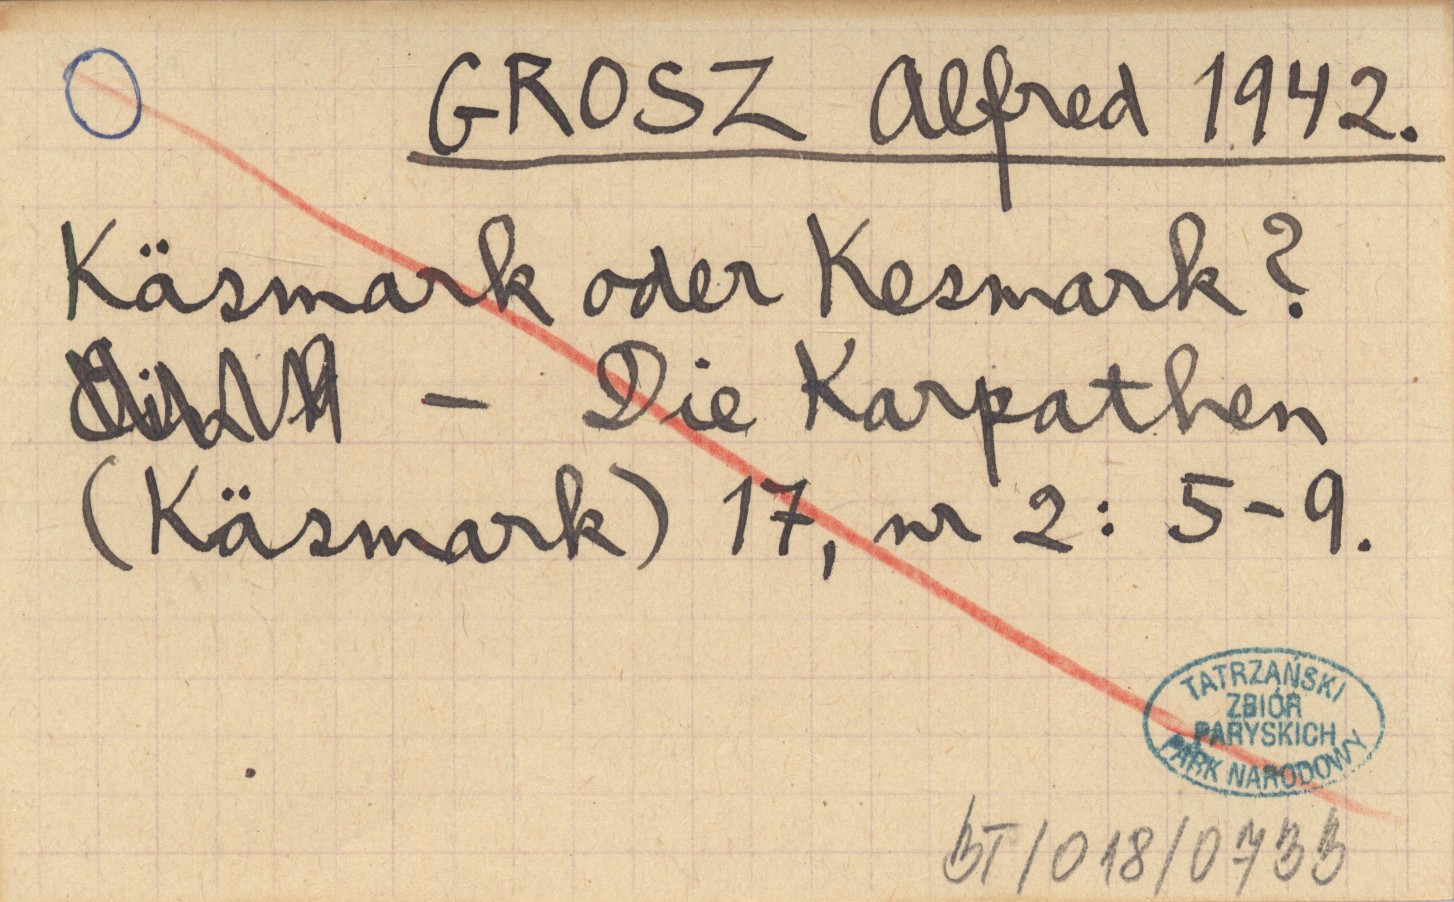 GROSZ Alfred 1942.
Käsmark oder Kesmark?
— Die Karpathen
(Käsmark) 17, nr 2: 5-9.
TATRZAŃSKI
ZBIÓR
PARYSKICH
PARK NARODOWY
BT/018/0733